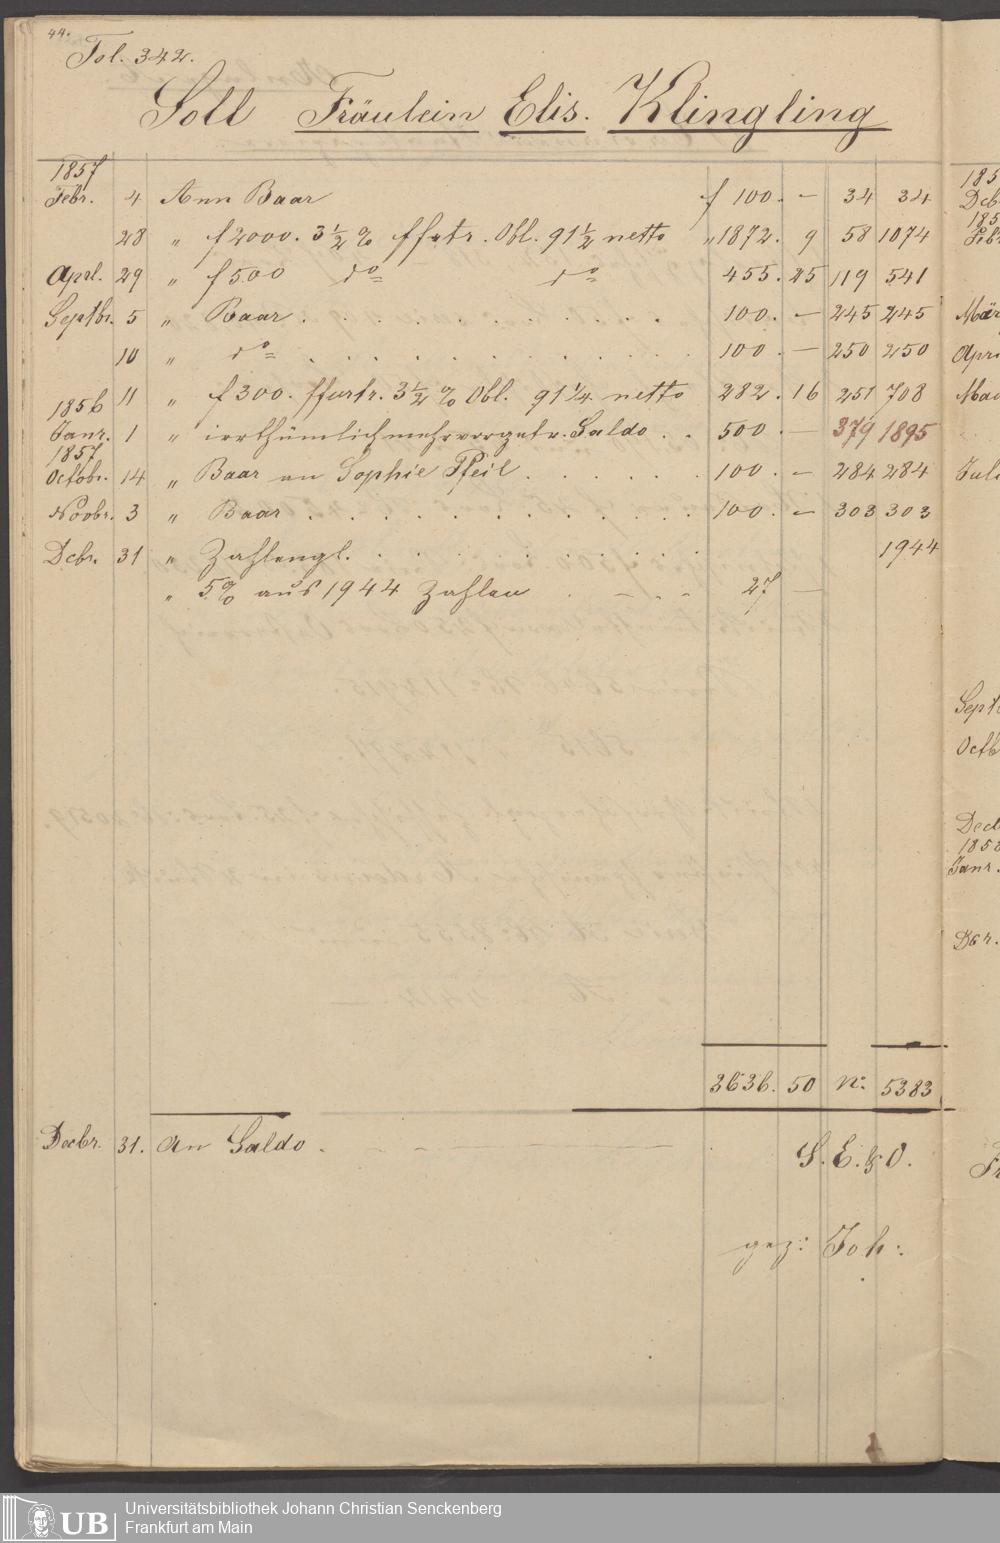 44.
Fol. 342.
Soll Fräulein Elis. Klingling
1857
Febr. 4 Ann Baar f 100. — 34 34
28 " f 2000. 3½ % ffrtr. Obl. 91½ netto " 1872. 9 58 1074
Aprl. 29 " f 500 do do 455. 25 119 541
Septbr. 5 " Baar . . . . . . . . . . 100. — 245 245
10 " do . . . . . . . . . . . 100. — 250 250
11 " f 300. ffurtr. 3½ % Obl. 91¼ netto 282. 16 251 708
1856
Janr. 1 " irrthümlich mehr vorgetr. Saldo . . 500. — 379 1895
1857
Octobr. 14 " Baar an Sophie Pfeil . . . . . . 100. — 284 284
Novbr. 3 " Baar . . . . . . . . . . . 100. — 303 303
Dcbr. 31 " Zahlengl. . . . . . . . . . . 1944
" 5% aus 1944 Zahlen . — . . 27 —
3636. 50 No. 5383
Decbr. 31. An Saldo .
S. E. & O.
gez: Joh:
185
Dcb
185
Febr
März
Apri
Mai
Juli
Septb
Octb
Decb
1858
Janr.
Dcr.
Fr
UB Universitätsbibliothek Johann Christian Senckenberg
Frankfurt am Main